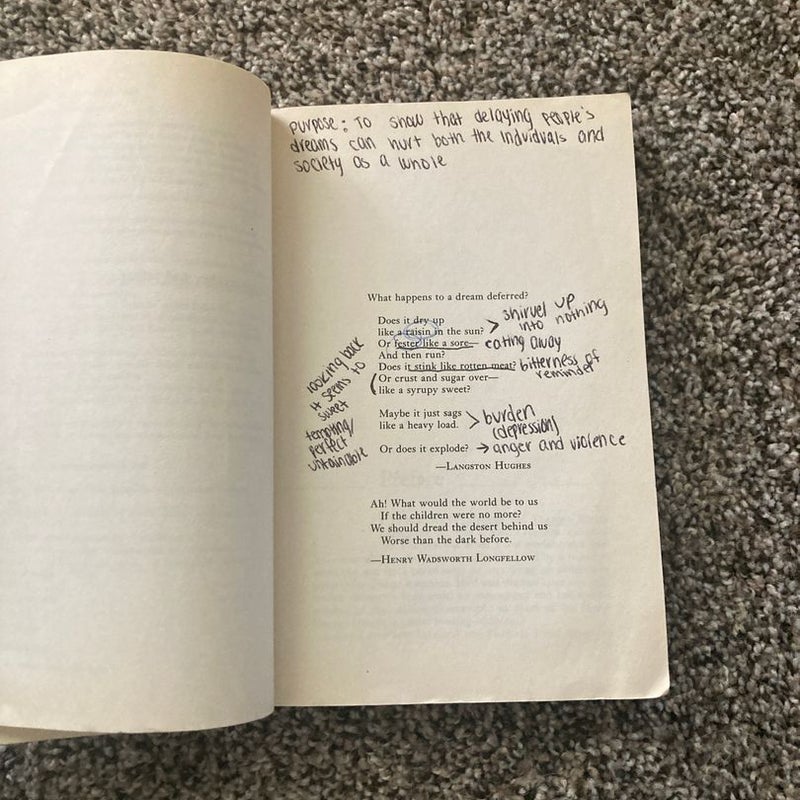 purpose: To show that delaying people's
dreams can hurt both the individuals and
society as a whole
What happens to a dream deferred?
Does it dry up
like a raisin in the sun?
shirvel up
into nothing
Or fester like a sore—
eating away
And then run?
Does it stink like rotten meat?
bitterness of
reminder
Or crust and sugar over—
like a syrupy sweet?
looking back
it seems to
sweet
tempting/
perfect
untainable
Maybe it just sags
like a heavy load.
burden
(depression)
Or does it explode?
→ anger and violence
—Langston Hughes
Ah! What would the world be to us
If the children were no more?
We should dread the desert behind us
Worse than the dark before.
—Henry Wadsworth Longfellow